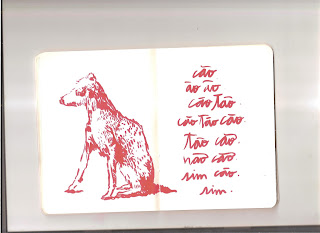 cão
ão não
cão tão.
cão tão cão.
tão cão.
não cão
sim cão.
sim.